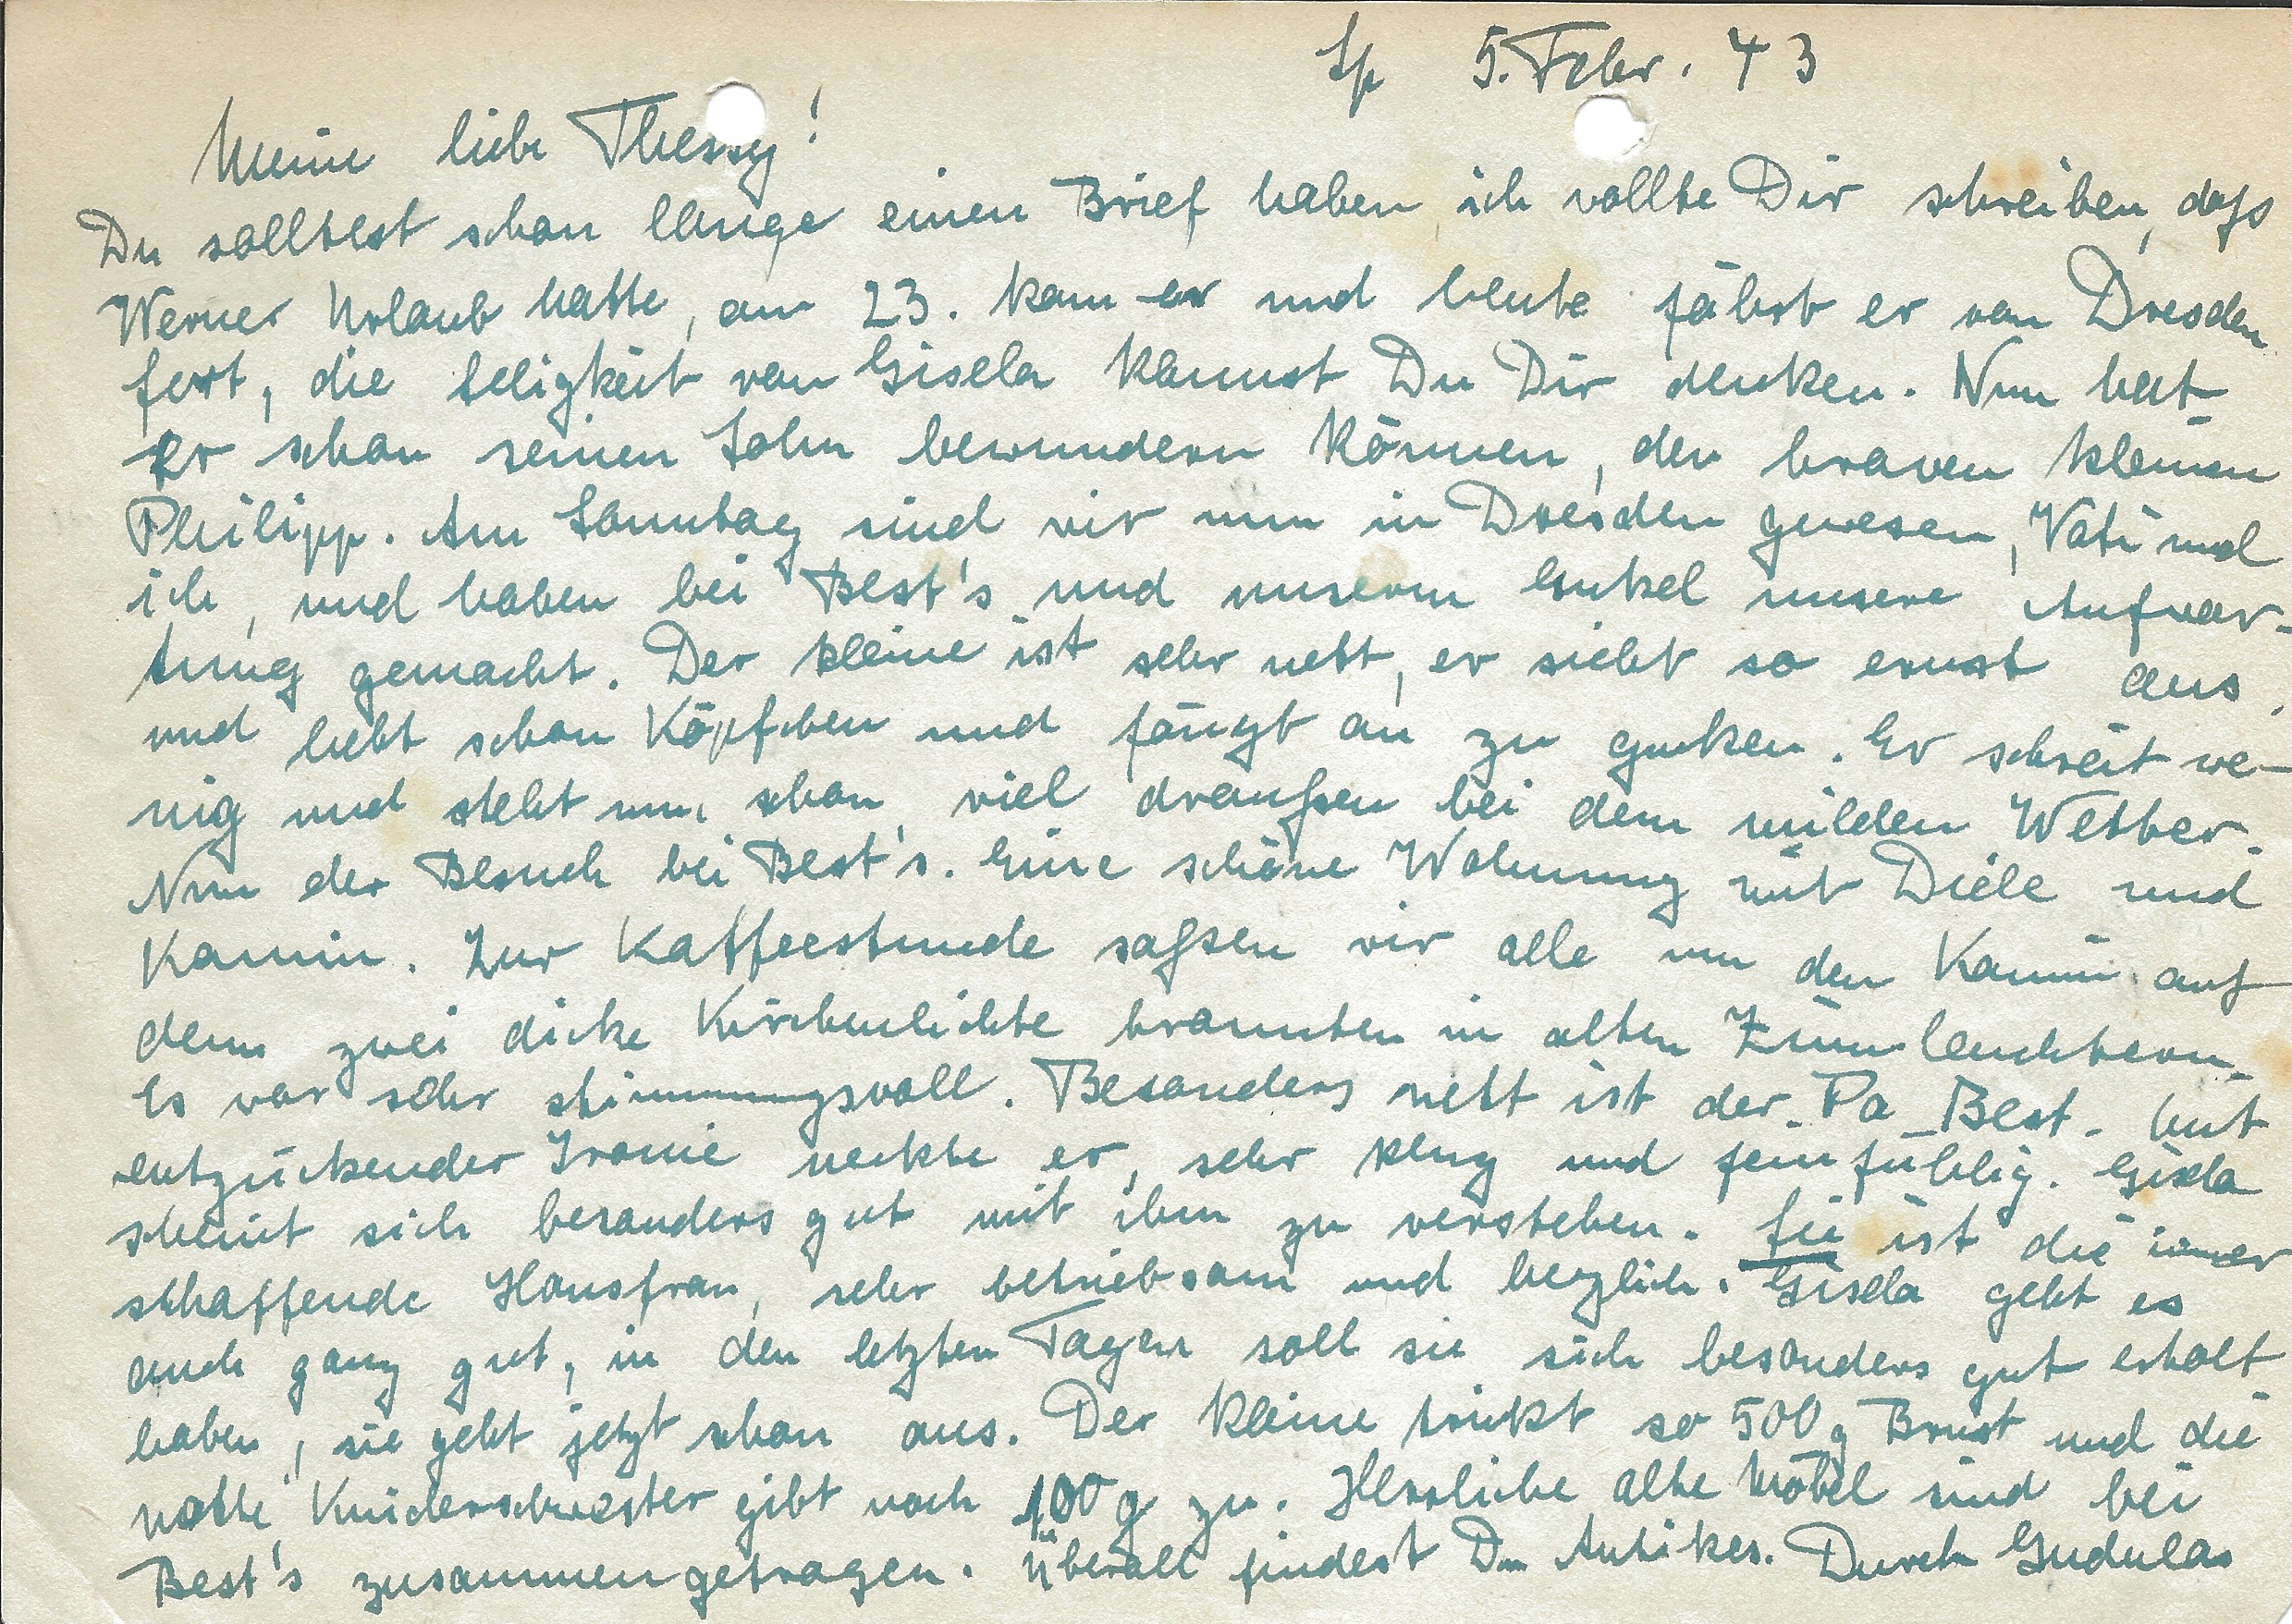 Lp 5. Febr. 43
Meine liebe Thessy!
Du solltest schon lange einen Brief haben, ich wollte Dir schreiben, dass
Werner Urlaub hatte, am 23. kam er und heute fährt er von Dresden
fort, die Seligkeit von Gisela kannst Du Dir denken. Nun hat
er schon seinen Sohn bewundern können, den braven kleinen
Philipp. Am Sonntag sind wir nun in Dresden gewesen, Vati und
ich, und haben bei Best's und unserm Enkel unsere Aufwar-
tung gemacht. Der kleine ist sehr nett, er sieht so ernst aus,
und hebt schon Köpfchen und fängt an zu gucken. Er schreit we-
nig und steht nun schon viel draußen bei dem milden Wetter.
Nun der Besuch bei Best's. Eine schöne Wohnung mit Diele und
Kamin. Zur Kaffeestunde saßen wir alle um den Kamin auf
dem zwei dicke Kirchenlichte brannten in alten Zinnleuchtern.
Es war sehr stimmungsvoll. Besonders nett ist der Pa Best. Mit
entzückender Ironie neckte er, sehr klug und feinfühlig. Gisela
scheint sich besonders gut mit ihm zu verstehen. Sie ist die immer
schaffende Hausfrau, sehr betriebsam und herzlich. Gisela geht es
auch ganz gut, in den letzten Tagen soll sie sich besonders gut erholt
haben, sie geht jetzt schon aus. Der kleine trinkt so 500 g Brust und die
nette Kinderschwester gibt noch 100 g zu. Herrliche alte Möbel sind bei
Best's zusammengetragen. Überall findest Du Antikes. Durch Gudulas